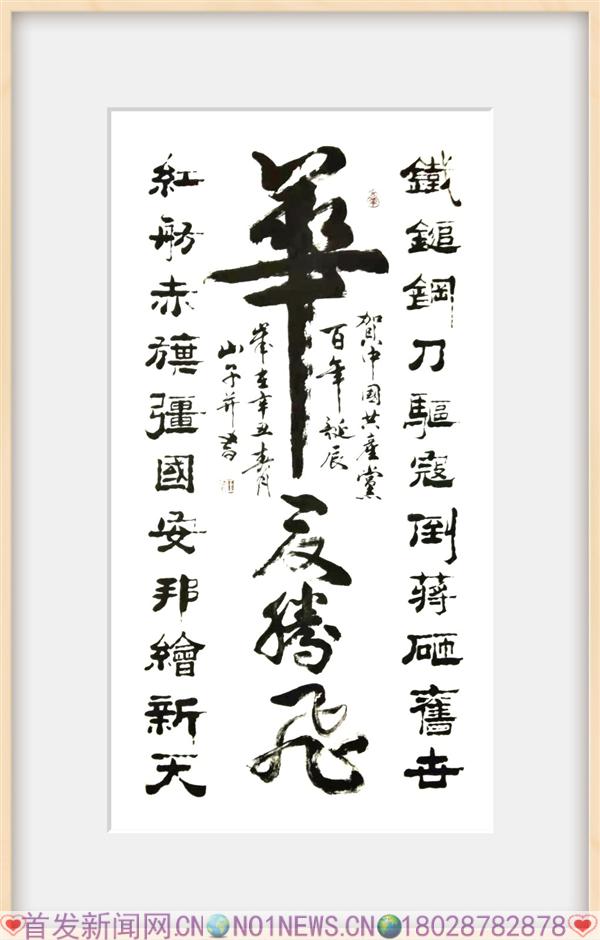 鐵鎚鋼刀驅寇倒蔣砸舊世
華夏騰飛
賀中國共產黨
百年誕辰
歲在辛丑春月
山子并書
紅舫赤旗彊國安邦繪新天
首发新闻网.CN NO1NEWS.CN 18028782878